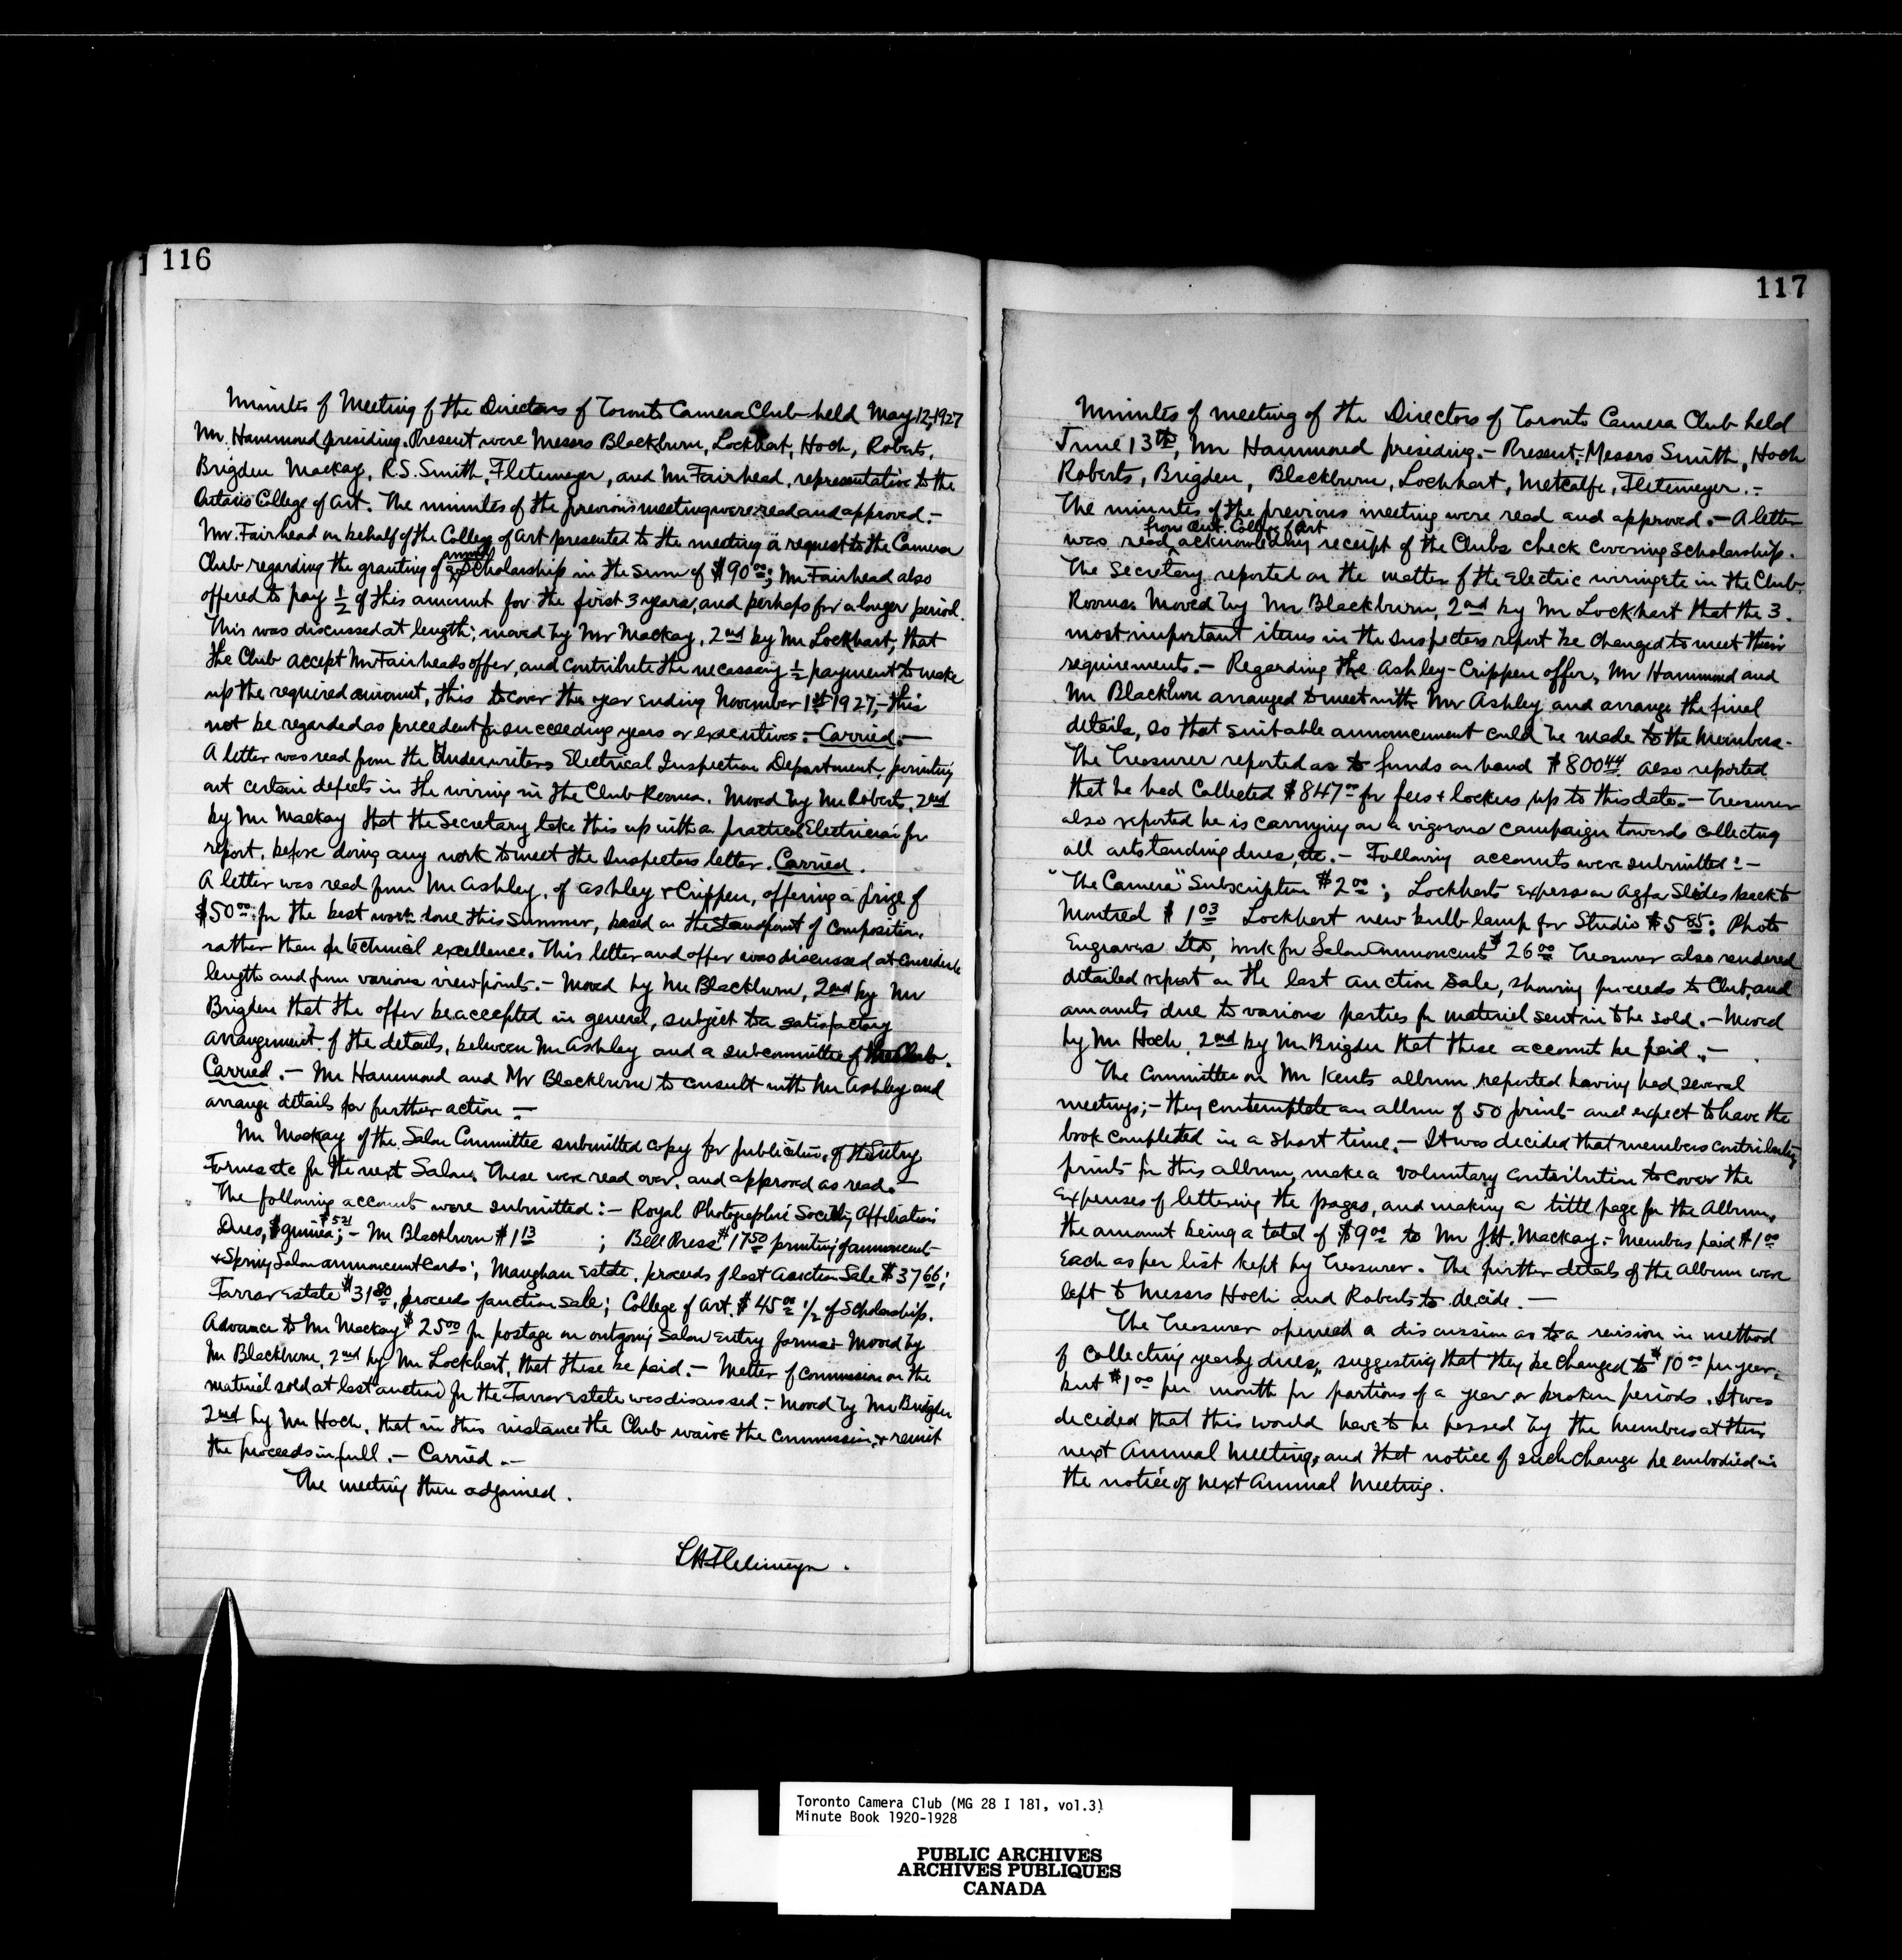 116
Minutes of Meeting of the Directors of Toronto Camera Club held May 12, 1927
Mr. Hammond presiding. Present were Messrs Blackburn, Lockhart, Hoch, Roberts,
Brigden Mackay, R.S. Smith, Fletemeyer, and Mr Fairhead, representative to the
Ontario College of Art. The minutes of the previous meeting were read and approved.-
Mr. Fairhead on behalf of the College of Art presented to the meeting a request to the Camera
Club regarding the granting of annual scholarship in the sum of $90 00; Mr Fairhead also
offered to pay 1/2 of this amount for the first 3 years, and perhaps for a longer period.
This was discussed at length; moved by Mr Mackay, 2nd by Mr Lockhart, that
the Club accept Mr Fairheads offer, and contribute the necessary 1/2 payment to make
up the required amount, this to cover the year ending November 1st 1927,- this
not be regarded as precedent for succeeding years or executives.- Carried.-
A letter was read from the Underwriters Electrical Inspection Department, pointing
out certain defects in the wiring in the Club Rooms. Moved by Mr Roberts, 2nd
by Mr Mackay that the Secretary take this up with a practical Electrician for
report, before doing any work to meet the Inspectors letter. Carried.
A letter was read from Mr Ashley, of Ashley & Crippen, offering a prize of
$50 00 for the best work done this summer, based on the standpoint of composition,
rather than for technical excellence. This letter and offer was discussed at considerable
length and from various viewpoints.- Moved by Mr Blackburn, 2nd by Mr
Brigden that the offer be accepted in general, subject to a satisfactory
arrangement of the details, between Mr Ashley and a subcommittee of the Club.
Carried.- Mr Hammond and Mr Blackburn to consult with Mr Ashley and
arrange details for further action -
Mr Mackay of the Salon Committee submitted copy for publication, of the Entry
Forms etc for the next Salon. These were read over, and approved as read.-
The following accounts were submitted:- Royal Photographic Society, Affiliation
Dues, $ guinea $5 21;- Mr Blackburn $1 13 ; Bell Press $17 50 printing of announcement
& Spring Salon announcement cards; Maughan Estate, proceeds of last Auction Sale $37 66;
Farrar Estate $31 80, proceeds of auction sale; College of Art. $45 00 1/2 of Scholarship.
Advance to Mr Mackay $25 00 for postage on outgoing Salon Entry forms. Moved by
Mr Blackburn, 2nd by Mr Lockhart, that these be paid.- Matter of commission on the
material sold at last auction for the Farrar Estate was discussed - Moved by Mr Brigden
2nd by Mr Hoch, that in this instance the Club waive the Commission, & remit
the proceeds in full.- Carried.-
The meeting then adjourned.
LH Fletemeyer.
117
Minutes of meeting of the Directors of Toronto Camera Club held
June 13th, Mr Hammond presiding.- Present; Messrs Smith, Hoch
Roberts, Brigden, Blackburn, Lockhart, Metcalfe, Fletemeyer.-
The minutes of the previous meeting were read and approved.- A letter
from Ont. College of Art
was read, acknowledging receipt of the Clubs check covering scholarship.
The Secretary reported on the matter of the Electric wiring etc in the Club
Rooms. Moved by Mr Blackburn, 2nd by Mr Lockhart that the 3
most important items in the Inspectors report be changed to meet their
requirements.- Regarding the Ashley-Crippen offer, Mr Hammond and
Mr Blackburn arranged to meet with Mr Ashley and arrange the final
details, so that suitable announcement could be made to the Members.
The Treasurer reported as to funds on hand $800 44. Also reported
that he had Collected $847 00 for fees & lockers, up to this date.- Treasurer
also reported he is carrying on a vigorous campaign towards collecting
all outstanding dues, etc.- Following accounts were submitted:-
"The Camera" Subscription $2 00; Lockhart express on Agfa Slides back to
Montreal $1 03 Lockhart new bulb lamp for Studio $5 85; Photo
Engravers Ltd, work for Salon Announcement $26 00 Treasurer also rendered
detailed report on the last auction sale, showing proceeds to Club, and
amounts due to various parties for material sent in to be sold.- Moved
by Mr Hoch, 2nd by Mr Brigden that these account be paid.-
The Committee on Mr Kents album reported having had several
meetings;- they contemplate an album of 50 prints and expect to have the
book completed in a short time.- It was decided that members contributing
prints for this album, make a voluntary contribution to cover the
Expenses of lettering the pages, and making a title page for the Album,
the amount being a total of $9 00 to Mr J.H. Mackay.- Members paid $1 00
each as per list kept by Treasurer. The further details of the album were
left to Messrs Hoch and Roberts to decide.-
The Treasurer opened a discussion as to a revision in method
of collecting yearly dues, suggesting that they be changed to $10 00 per year,
but $1 00 per month for portions of a year or broken periods. It was
decided that this would have to be passed by the members at their
next Annual Meeting, and that notice of such change be embodied in
the notice of next Annual Meeting.
Toronto Camera Club (MG 28 I 181, vol.3)
Minute Book 1920-1928
PUBLIC ARCHIVES
ARCHIVES PUBLIQUES
CANADA